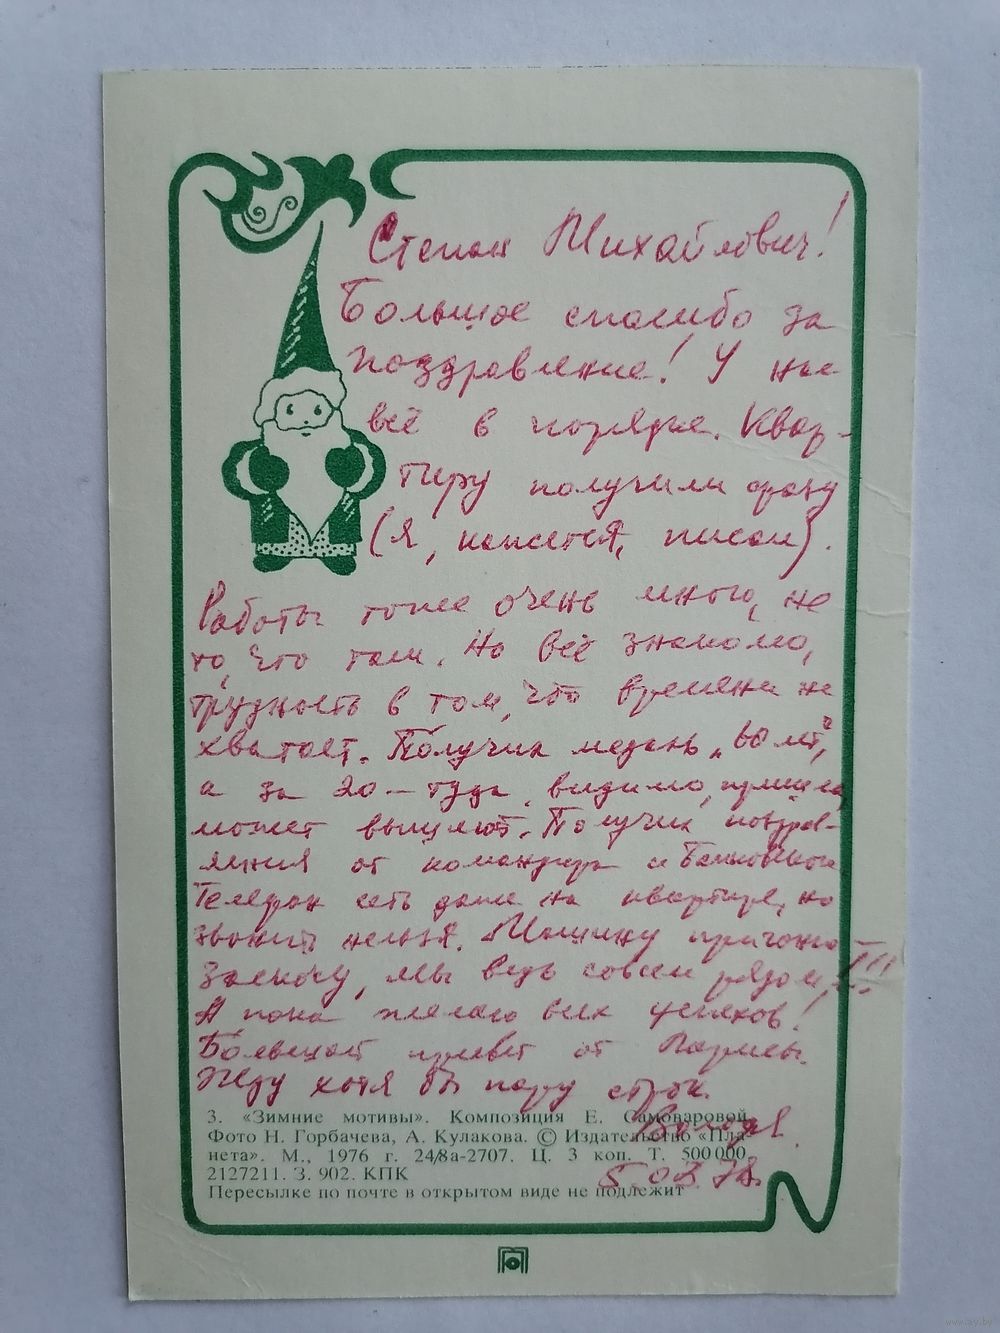 Степан Михайлович!
Большое спасибо за
поздравление! У нас
всё в порядке. Квар-
тиру получили сразу
(я, кажется, писал).
Работы тоже очень много, не
то, что там. Но всё знакомо,
трудность в том, что времени не
хватает. Получил медаль „60 лет",
а за 20 – туда, видимо,
может вышлют. Получил поздрав-
ления от командира и
Телефон есть даже на квартире, но
звонить нельзя. Машину пригоню
заскочу, мы ведь совсем рядом!
А пока желаю всех успехов!
Большой привет от
Жду хотя бы пару строк.
Володя.
5.03.78.
3. «Зимние мотивы». Композиция Е. Самоваровой
Фото Н. Горбачева, А. Кулакова. © Издательство «Пла-
нета». М., 1976 г. 24/8а-2707. Ц. 3 коп. Т. 500 000
2127211. З. 902. КПК
Пересылке по почте в открытом виде не подлежит
www.ay.by